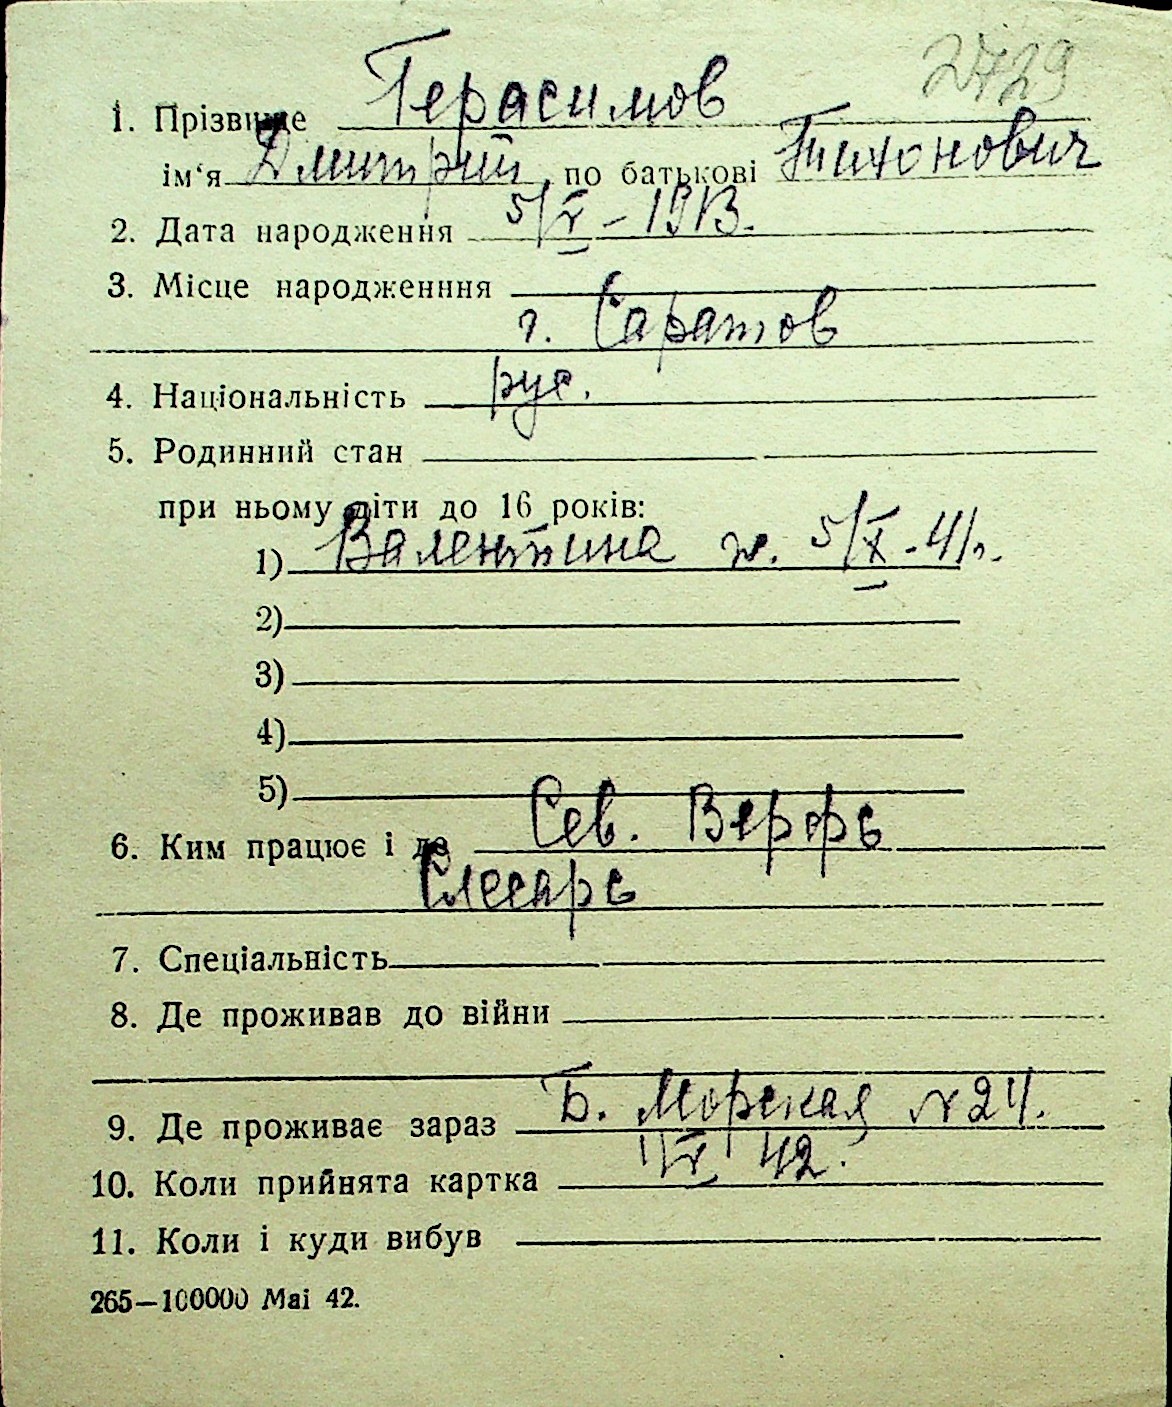 2729
1. Прізвище Герасимов
ім‘я Дмитрий по батькові Тихонович
2. Дата народження 5/V – 1913.
3. Місце народженння
г. Саратов
4. Національність рус.
5. Родинний стан
при ньому діти до 16 років:
1) Валентина ж. 5/X - 41 г.
2)
3)
4)
5)
6. Ким працює і де Сев. Верфь
Слесарь
7. Спеціальність
8. Де проживав до війни
9. Де проживає зараз Б. Морская № 24.
10. Коли прийнята картка 42.
11. Коли і куди вибув
265—100000 Mai 42.